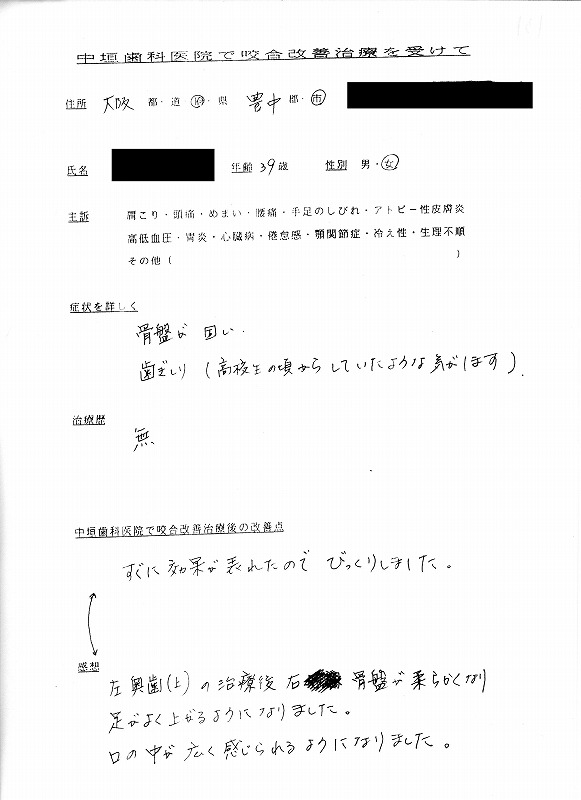 中垣歯科医院で咬合改善治療を受けて
住所 大阪 都・道・府・県 豊中 郡・市
氏名 年齢 39歳 性別 男・女
主訴 肩こり・頭痛・めまい・腰痛・手足のしびれ・アトピー性皮膚炎
高低血圧・胃炎・心臓病・倦怠感・顎関節症・冷え性・生理不順
その他( )
症状を詳しく
骨盤が固い.
歯ぎしり(高校生の頃からしていたような気がします).
治療歴
無
中垣歯科医院で咬合改善治療後の改善点
すぐに効果が表れたのでびっくりしました。
感想
左奥歯(上)の治療後右骨盤が柔らかくなり
足がよく上がるようになりました。
口の中が広く感じられるようになりました。